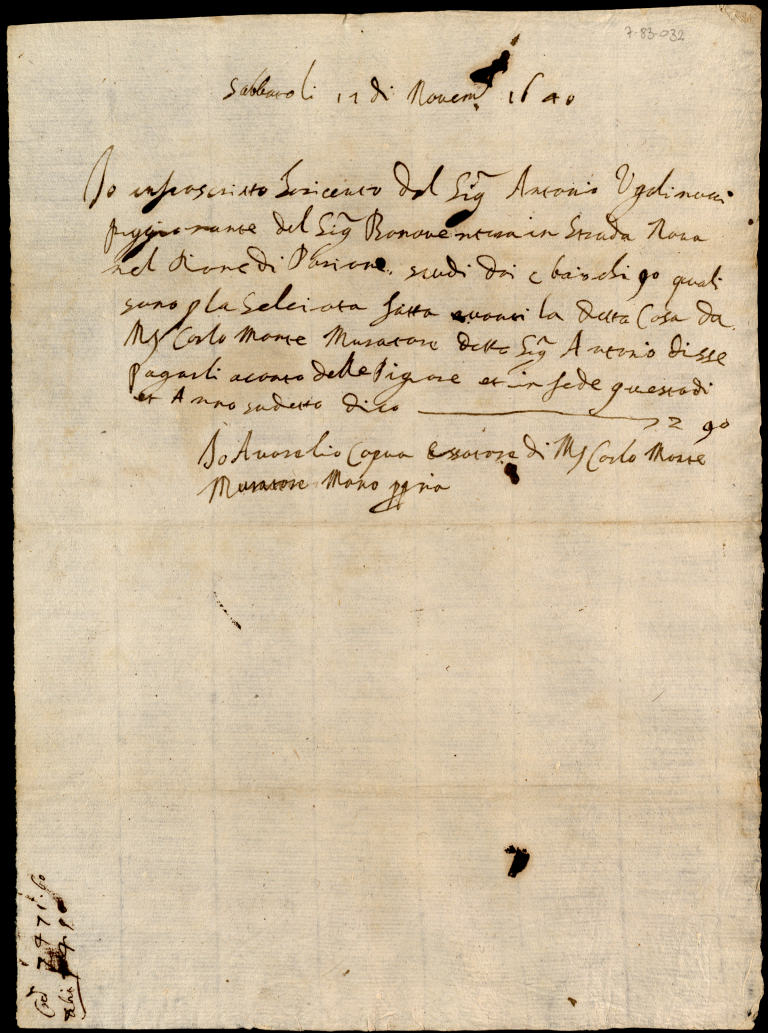 7-83-032
Sabbato li 12 di Novem. 1640
Io infrascritto ho ricevuto dal Sigr Antonio Ugolinucci
piggionante del Sigr Bonaventura in Strada Nova
nel Rione di Parione scudi doi e baiochi 90 quali
sono p la Selciata fatta avanti la detta Casa da
Mr Carlo Monte Muratore detto Sigr Antonio disse
pagarli a conto delle Pigione et in fede questo di
et Anno sudetto dico 2 90
Io Aurelio Capua Essatore di Mr Carlo Monte
Muratore Mano ppria